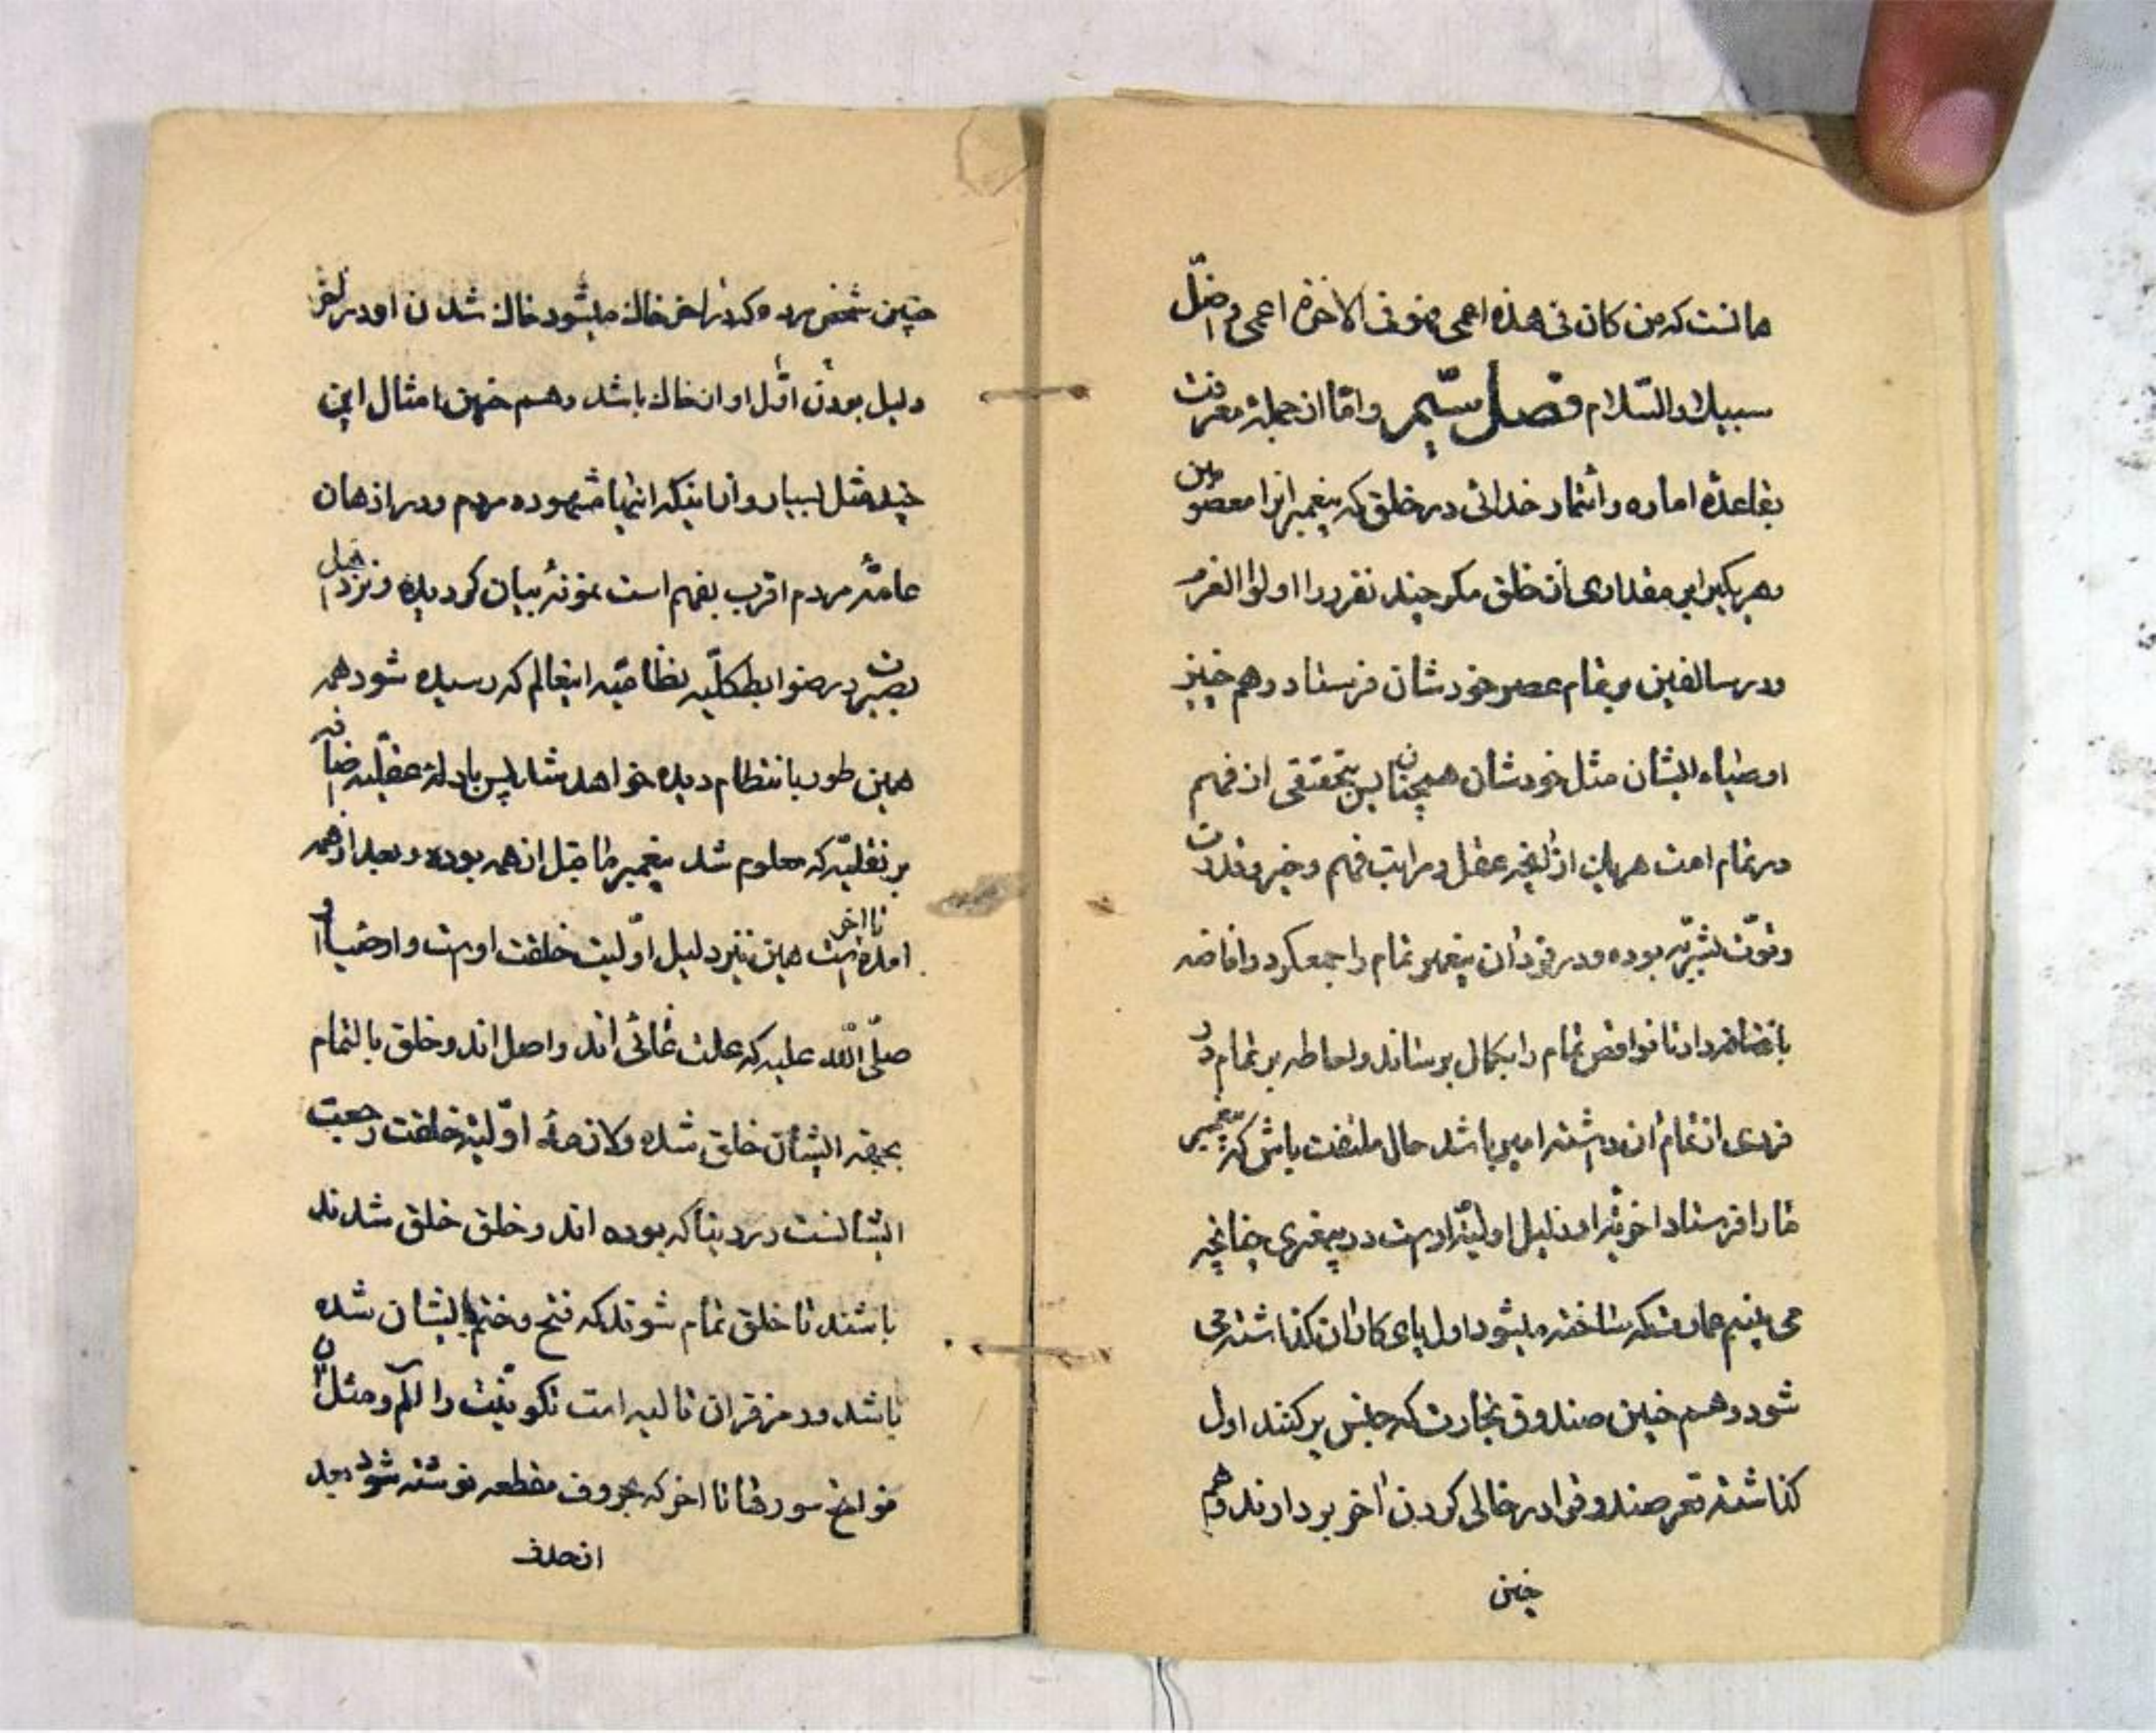 هما نست که من کان فی هذه اعمی فهو فی الاخرة اعمی و اضلّ
سبیلا والسّلام فصل سیّم و امّا از جمله معرفت
بقاعدهٔ اماره و اثمار خدائی در خلق که پیغمبرانرا معصومین
و هر یکیرا بر مقداری از خلق مکر چند نفر را اولوا العزم
بر تمام عصر خودشان فرستاد و هم چنین
اوصیاء ایشان مثل خودشان همچنان پس بتحقیقی از فهم
در تمام امت هر یک از عقل و مراتب فهم و خبر و قدرت
و قوّت بشریّه بوده و در خود آن پیغمبر تمام را جمع کرد و افاضه
تا نواقص تمام را بکمال برساند و احاطه بر تمام در
فردی از تمام آن داشته امیر باشد حال ملتفت باش که پیغمبر
ما را فرستاد اخریّه او دلیل اولیّه اوست در پیغمبری چنانچه
می بینیم عمارت که ساخته میشود اول پای کار آن کذاشته می
شود و هم چنین صندوق تجارت که جنس پر کنند اول
کذاشته قعر صندوق در خالی کردن آخر بردارند و هم
چنین
چنین شخص مرده که در آخر خاک میشود خاک شدن او در آخر
دلیل بودن اوّل او از خاک باشد و هم چنین امثال این
چند مثل بسیار و از اینکه اینها مشهوده مردم و در اذهان
عامّهٔ مردم اقرب بفهم است نمونهٔ بیان کردیده و نزد اهل
بصیرت در ضوابط کلّیه نظامیّه اینعالم که رسیده شود همه
همین طور با انتظام دیده خواهد شد پس بادلهٔ عقلیّه
بر نقلیّه که معلوم شد پیغمبر ما قبل از همه بوده و بعد از همه
تا آخر
امده است همین نیز دلیل اوّلیت خلقت اوست و اوصیاء او
صلّی الله علیه که علت غائی اند و اصل اند و خلق بالتمام
بجهة ایشان خلق شده و لازمهٔ اوّلیّه خلقت رجعت
ایشانست در دنیا که بوده اند و خلق خلق شدند
باشند تا خلق تمام شوند که فتح و ختم بایشان شده
باشد و رمز قران تکوینیّت را الم و مثل آن
فواتح سورها تا اخر که بحروف مقطعه نوشته شود بعد
از حذف